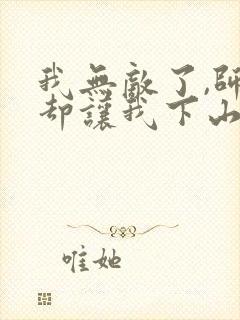 我無敵了,師
却讓我下山
唯她